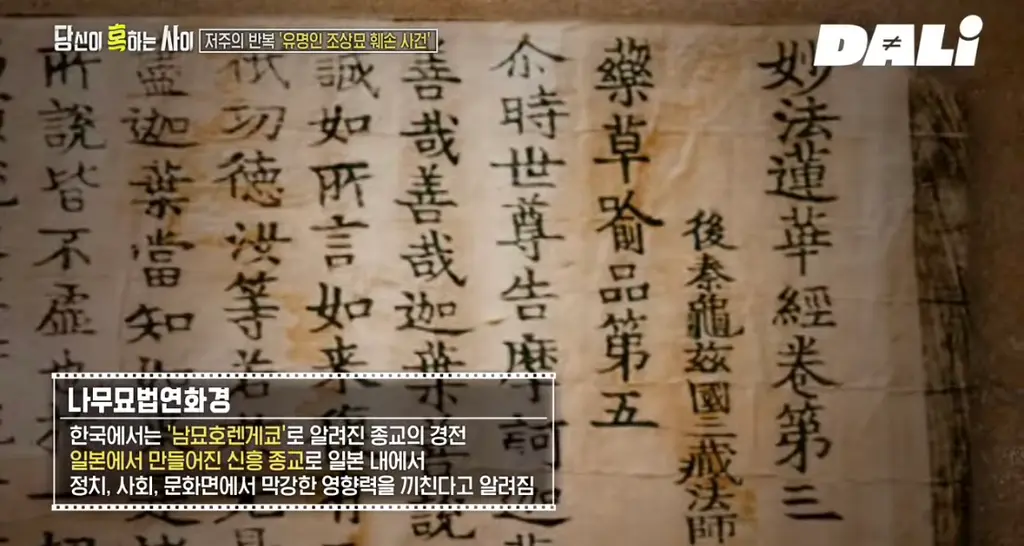 당신이 혹하는 사이
저주의 반복 '유명인 조상묘 훼손 사건'
DALi
妙法蓮華經卷第三
後秦龜玆國三藏法師
藥草喻品第五
尒時世尊告摩訶迦
善哉善哉迦葉善說
誠如所言如来
祇功德
盡迦葉當知
所說皆不虛
나무묘법연화경
한국에서는 '남묘호렌게쿄'로 알려진 종교의 경전
일본에서 만들어진 신흥 종교로 일본 내에서
정치, 사회, 문화면에서 막강한 영향력을 끼친다고 알려짐